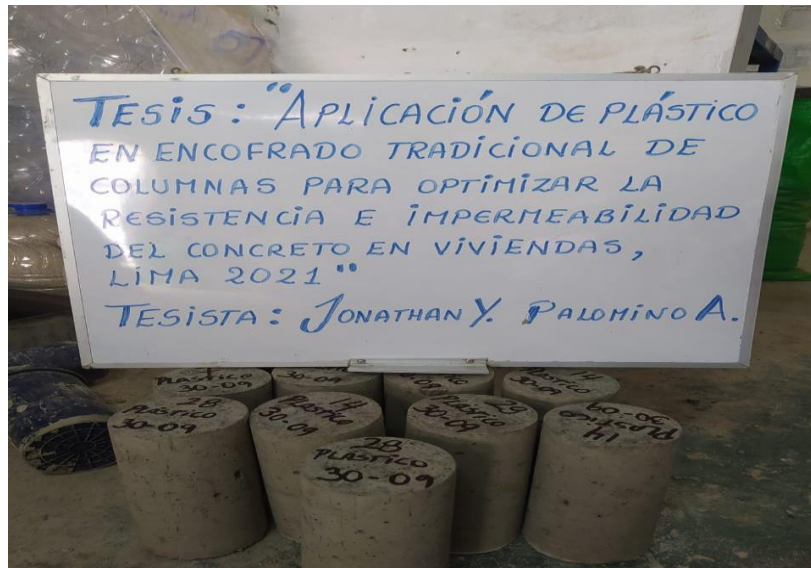 TESIS: "APLICACIÓN DE PLÁSTICO
EN ENCOFRADO TRADICIONAL DE
COLUMNAS PARA OPTIMIZAR LA
RESISTENCIA E IMPERMEABILIDAD
DEL CONCRETO EN VIVIENDAS,
LIMA 2021"
TESISTA: JONATHAN Y. PALOMINO A.
PLASTICO
30-09
14
30-09
28
PLASTICO
30-09
14
PLASTICO
30-09
PLASTICO
30-09
14
PLASTICO
30-09
28
PLASTICO
30-09